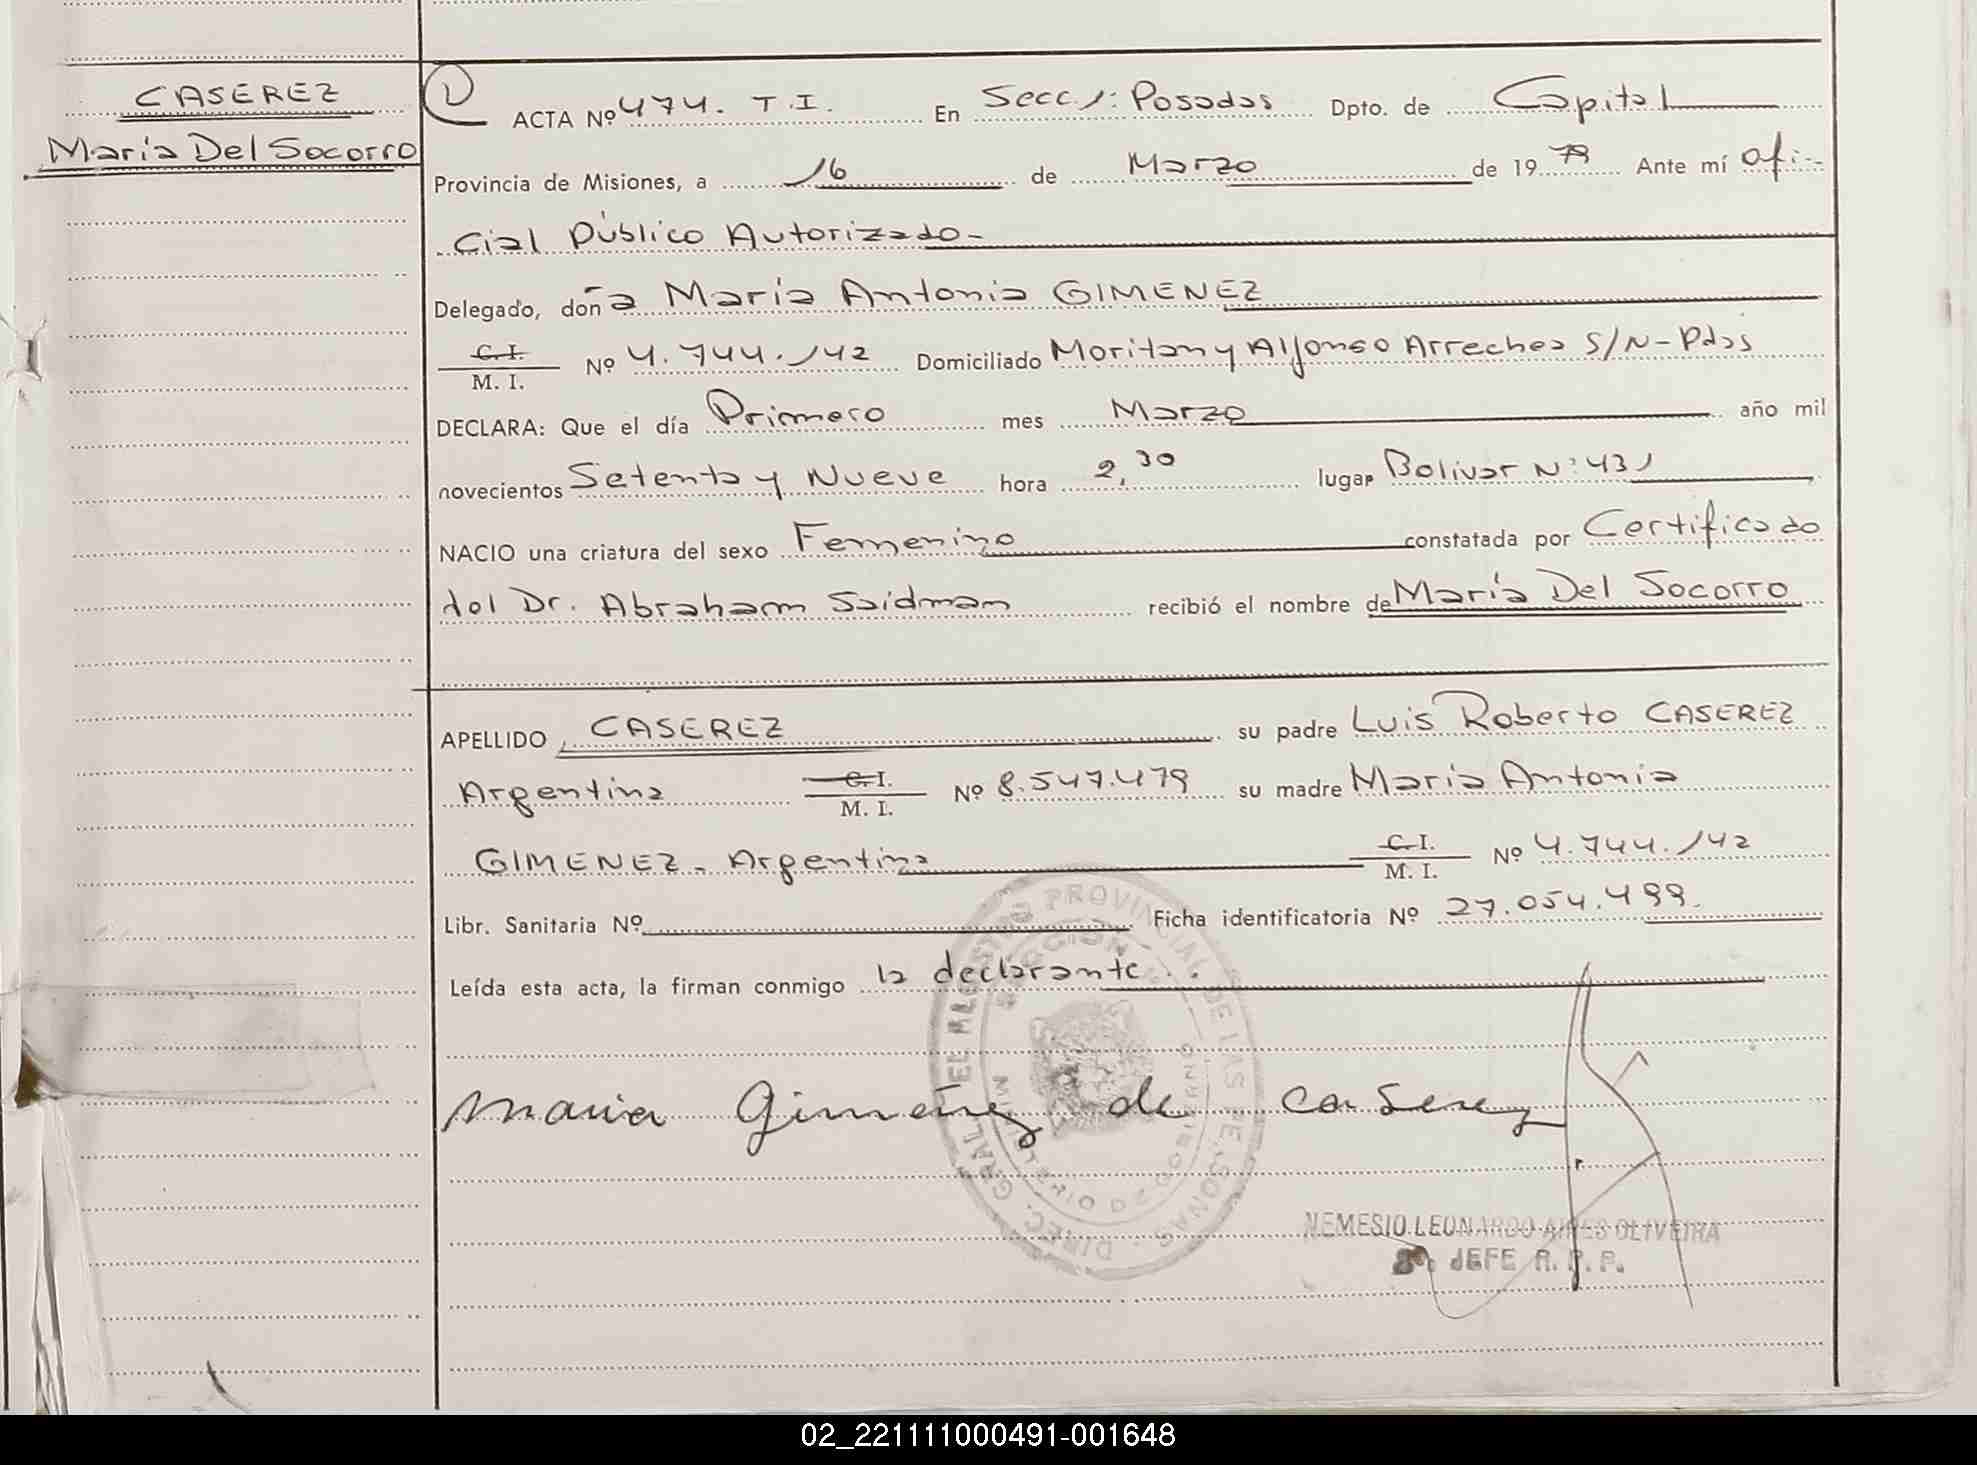 CASEREZ
María Del Socorro
ACTA Nº 474. T.I. En Secc. 1: Posadas Dpto. de Capital
Provincia de Misiones, a 16 de Marzo de 1979 Ante mí Ofi-
cial Público Autorizado-
Delegado, doña María Antonia GIMENEZ
C.I.
M. I. Nº 4.744.142 Domiciliado Moritan y Alfonso Arrechea S/N-Pdas
DECLARA: Que el día Primero mes Marzo año mil
novecientos Setenta y Nueve hora 2,30 lugar Bolivar Nº 431
NACIO una criatura del sexo Femenino constatada por Certificado
del Dr. Abraham Saidman recibió el nombre de María Del Socorro
APELLIDO CASEREZ su padre Luis Roberto CASEREZ
Argentina C.I.
M. I. Nº 8.547.479 su madre María Antonia
GIMENEZ - Argentina C.I.
M. I. Nº 4.744.142
Libr. Sanitaria Nº Ficha identificatoria Nº 27.054.499.
Leída esta acta, la firman conmigo la declarante..
Maria Gimenez de Caserez
DIREC. GRAL. DEL REGISTRO PROVINCIAL DE LAS PERSONAS
NEMESIO LEONARDO AIRES OLIVEIRA
JEFE R.P.P.
02_221111000491-001648